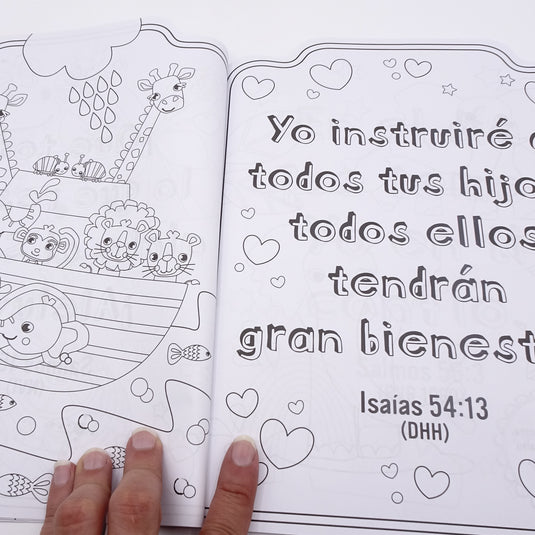 Yo instruiré a
todos tus hijo
todos ellos
tendrán
gran bienest
Isaías 54:13
(DHH)